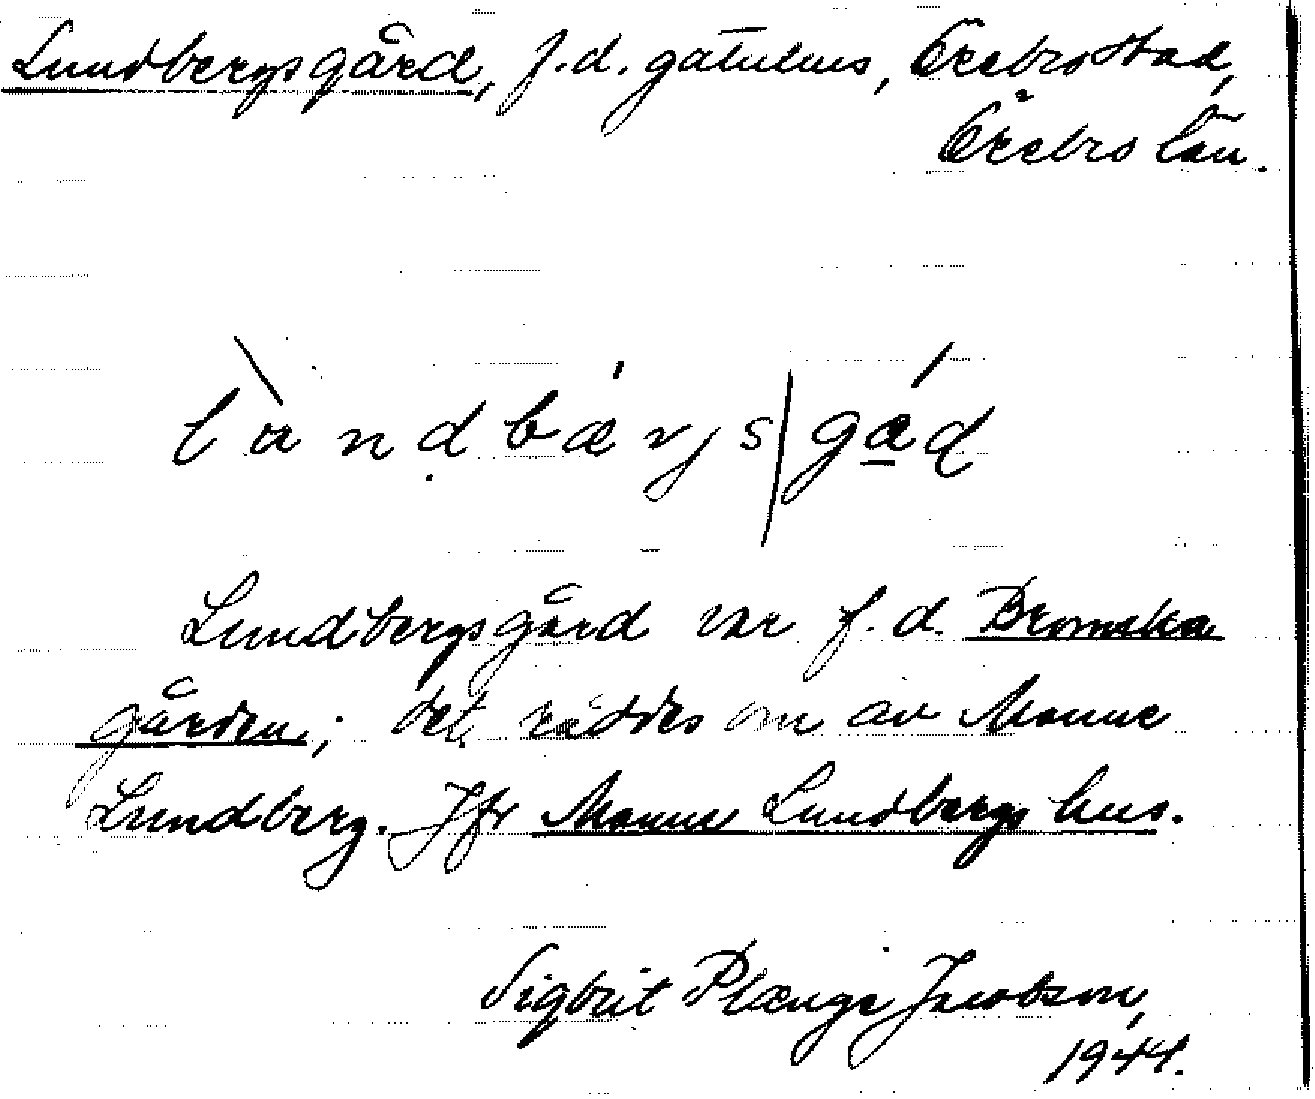 Lundbergsgård, f.d. gatuhus, Örebro stad,
Örebro län.
Lundbergsgård var f.d. Bromska
gården; det råddes om av Manne
Lundberg. Jfr Manne Lundbergs hus.
Sigbrit Plænge Jacobson,
1944.